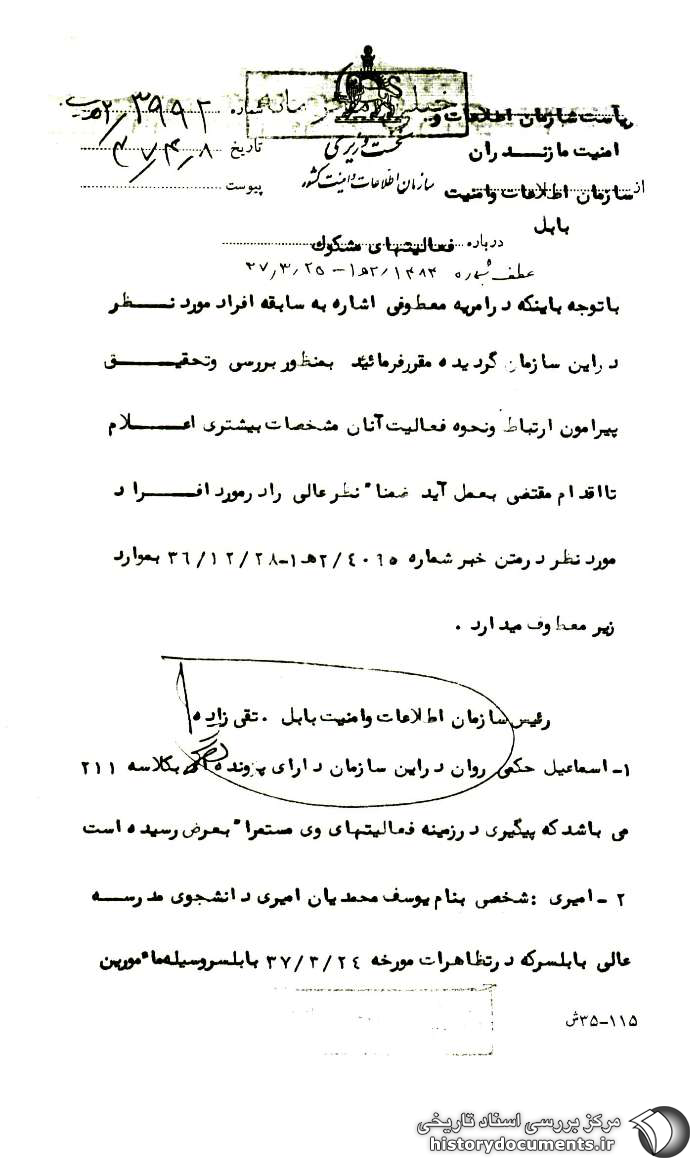 خیلی محرمانه
شماره ۳۹۹۲/۵۲
ریاست سازمان اطلاعات و
نخست وزیری
تاریخ ۳۷/۴/۸
امنیت مازندران
سازمان اطلاعات و امنیت کشور
پیوست
از سازمان اطلاعات وامنیت
بابل
درباره فعالیتهای مشکوک
عطف بشماره ۲/۱۴۸۴ه‍۱-۳۷/۳/۲۵
باتوجه باینکه درامریه معطوفی اشاره به سابقه افراد مورد نظر
دراین سازمان گردیده مقررفرمائید بمنظور بررسی وتحقیق
پیرامون ارتباط ونحوه فعالیت آنان مشخصات بیشتری اعلام
تااقدام مقتضی بعمل آید ضمنا" نظر عالی رادرمورد افراد
مورد نظر درمتن خبر شماره ۲/۴۰۶۵ه‍۱-۳۶/۱۲/۲۸ بموارد
زیر معطوف میدارد .
رئیس سازمان اطلاعات وامنیت بابل . تقی زاده
۱- اسماعیل حکمی روان دراین سازمان دارای پرونده ای بکلاسه ۲۱۱
می باشدکه پیگیری درزمینه فعالیتهای وی مستمرا" بعرض رسیده است
۲ - امیری : شخصی بنام یوسف محمدیان امیری دانشجوی مدرسه
عالی بابلسرکه درتظاهرات مورخه ۳۷/۳/۲۴ بابلسروسیله مأمورین
۳۵-۱۱۵ش
مرکز بررسی اسناد تاریخی
historydocuments.ir